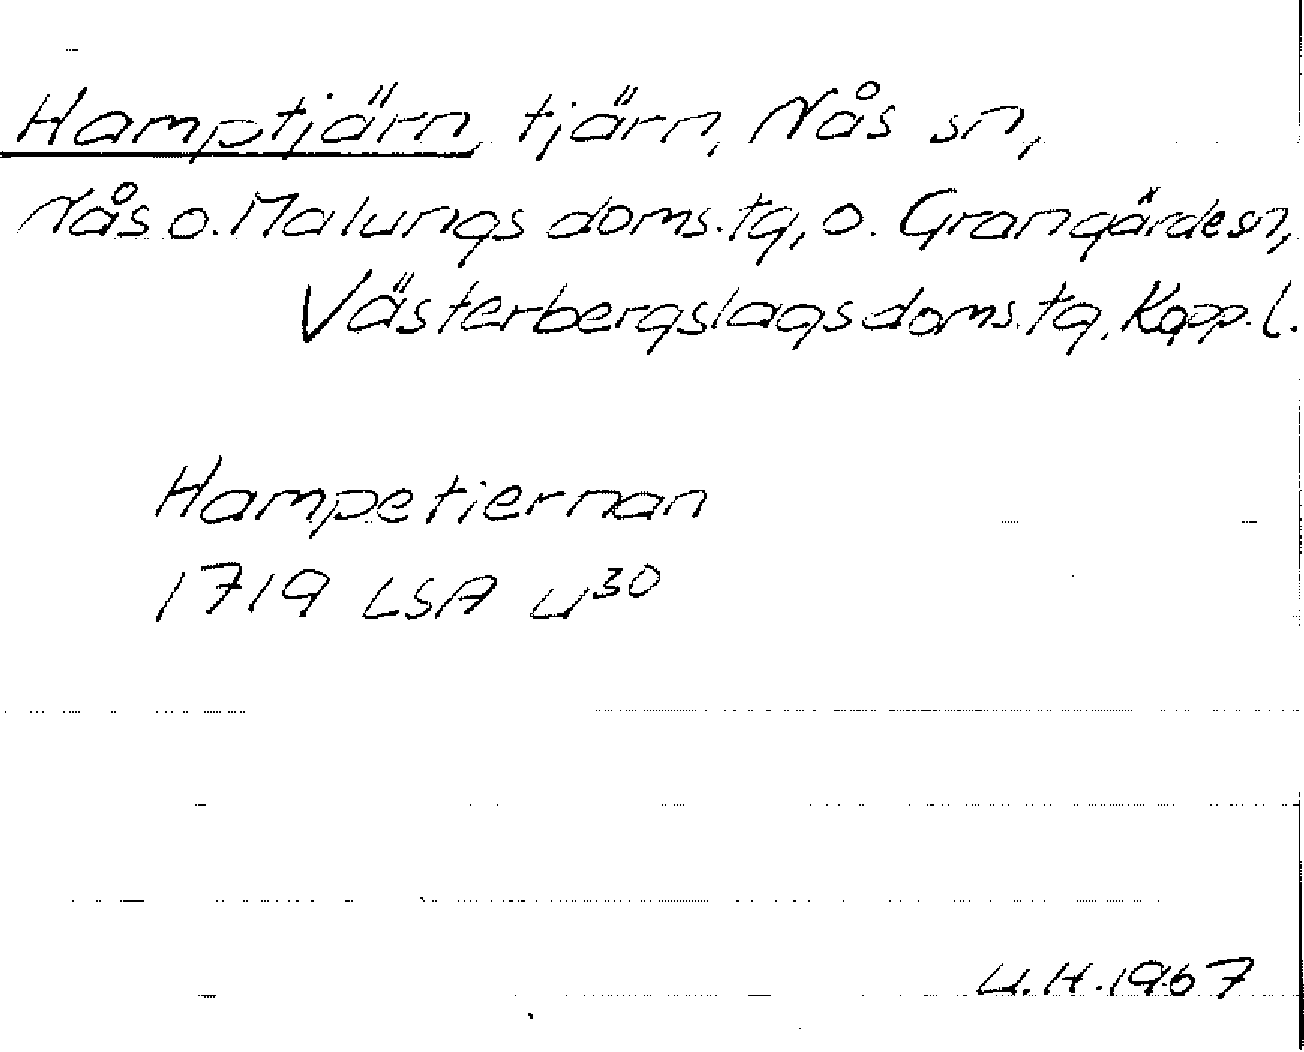 Hamptjärn, tjärn, Nås sn,
Nås o. Malungs doms.tg, o. Grangärde sn,
Västerbergslags doms.tg, Kopp. l.
Hampetiernan
1719 LSA U30
U.H. 1967